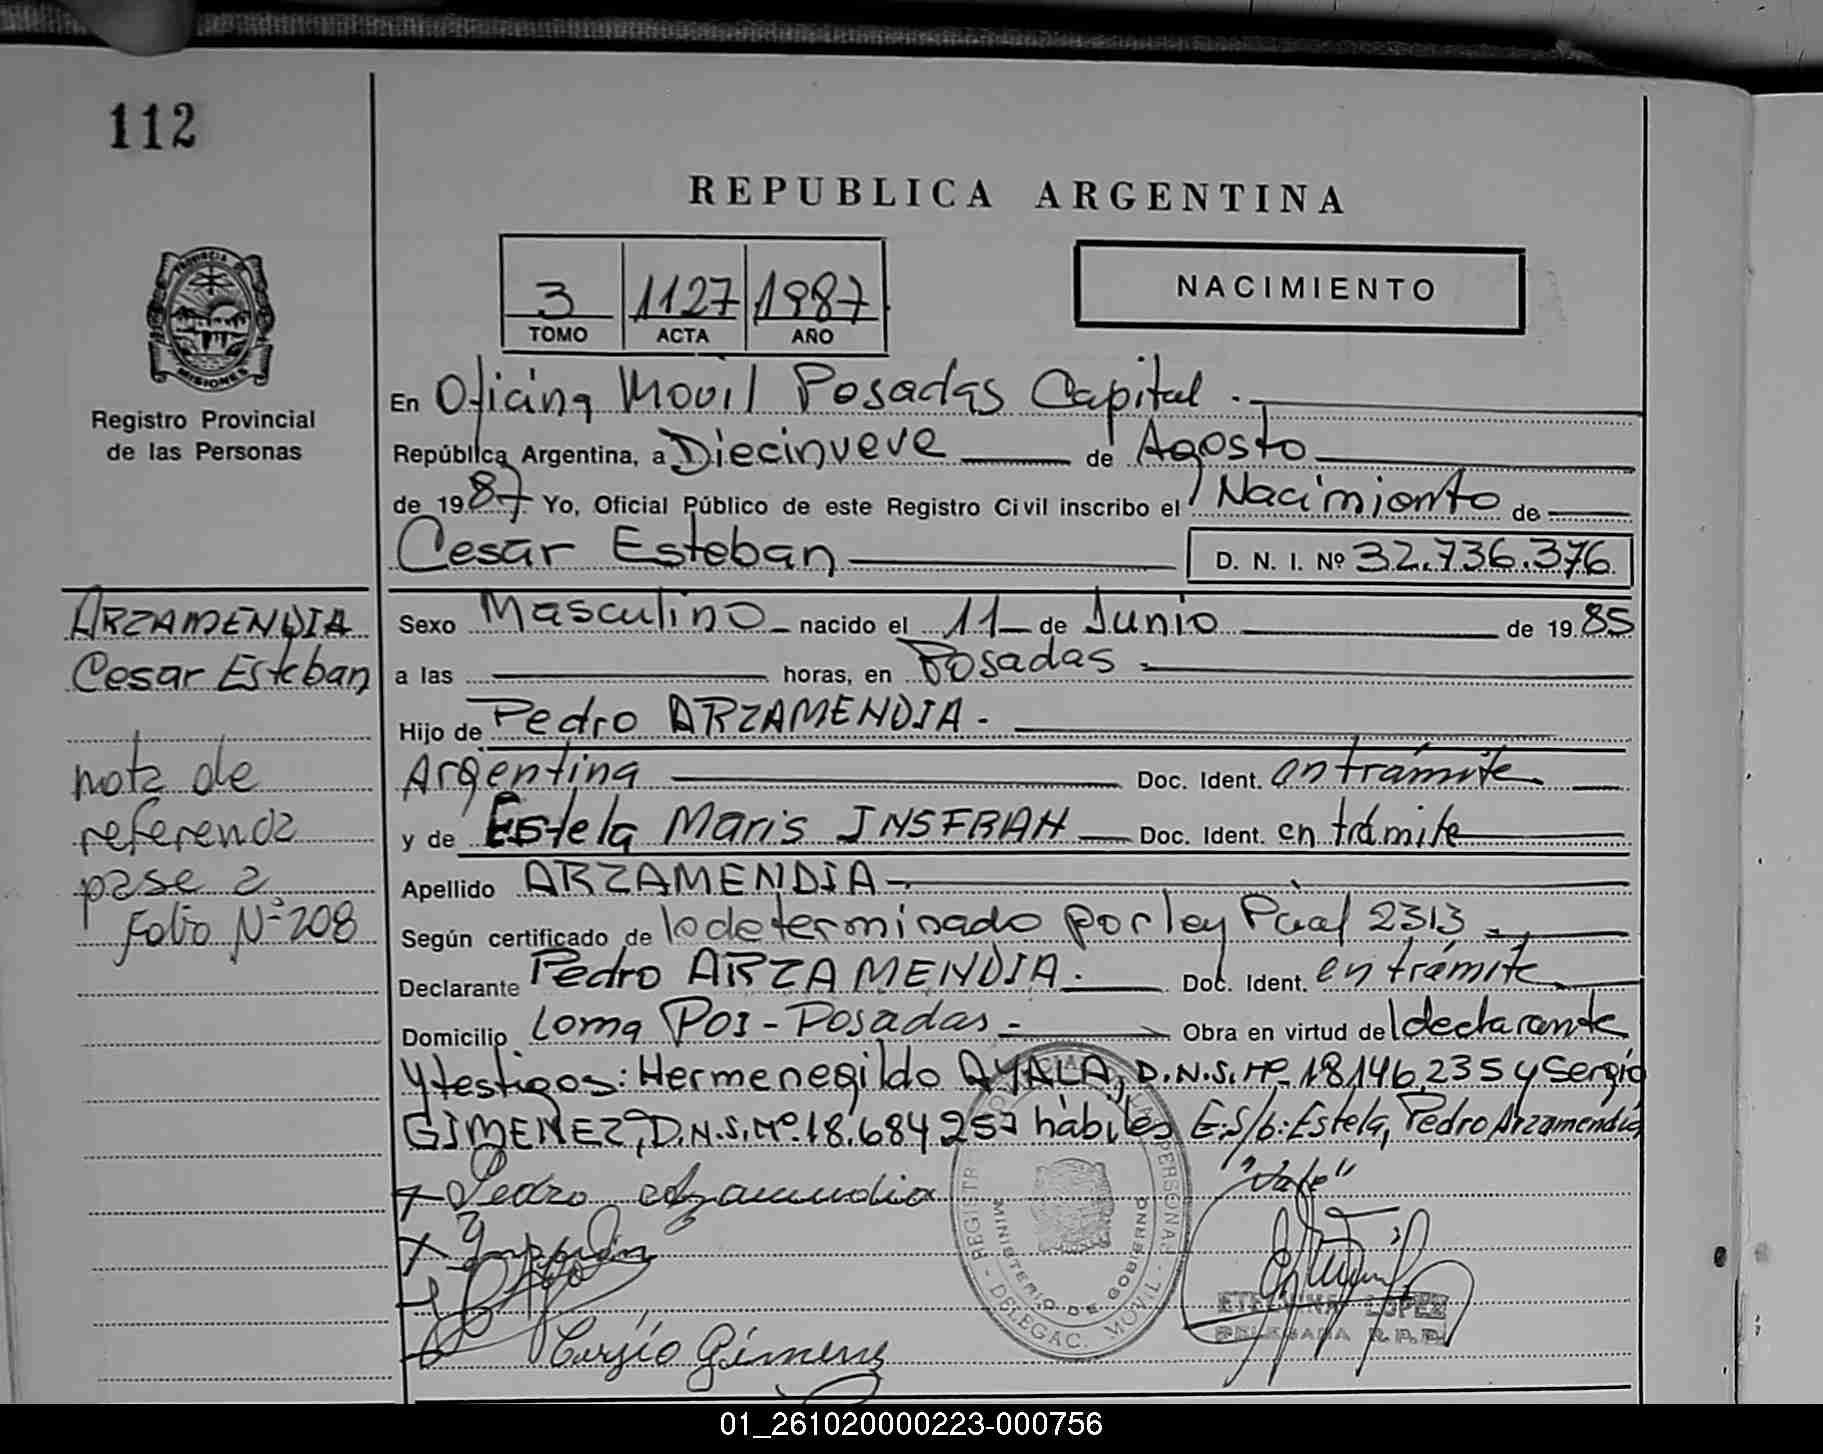 112
REPUBLICA ARGENTINA
3 1127 1987
TOMO ACTA AÑO
NACIMIENTO
PROVINCIA DE
MISIONES
Registro Provincial
de las Personas
En Oficina Movil Posadas Capital.
República Argentina, a Diecinueve de Agosto
de 1987 Yo, Oficial Público de este Registro Civil inscribo el Nacimiento de
Cesar Esteban D. N. I. Nº 32.736.376
Sexo Masculino nacido el 11 de Junio de 1985
a las horas, en Posadas
Hijo de Pedro ARZAMENDIA.
Argentina Doc. Ident. en trámite
y de Estela Maris INSFRAN Doc. Ident. en trámite
Apellido ARZAMENDIA
Según certificado de lo determinado por ley Pcial 2313
Declarante Pedro ARZAMENDIA. Doc. Ident. en trámite
Domicilio Loma Poi - Posadas - Obra en virtud del declarante
y testigos: Hermenegildo AYALA, D.N.I. Nº 18.146.235 y Sergio
GIMENEZ, D.N.I. Nº 18.684.257 hábiles E.S/b: Estela, Pedro Arzamendia
"Vale"
Pedro Arzamendia
Sergio Gimenez
ARZAMENDIA
Cesar Esteban
nota de
referencia
pase a
Folio Nº 208
MINISTERIO DE GOBIERNO
DELEGAC. MOVIL
LOPEZ
DELEGADA R.P.P.
01_261020000223-000756